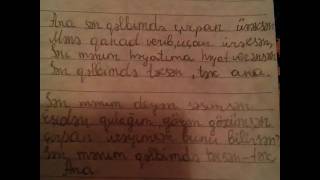 Ana sən qəlbimdə çırpan ürəksən,
Mənə qanad verib, uçan ürəksən,
Sən mənim həyatıma həyat verənsən
Sən qəlbimdə təksən, tək ana.
Sən mənim deyən səsimsən
eşidən qulağım görən gözümsən
çırpan ürəyimsən bunu bilirsən?
Sən mənim qəlbimdə təksən-tək
Ana